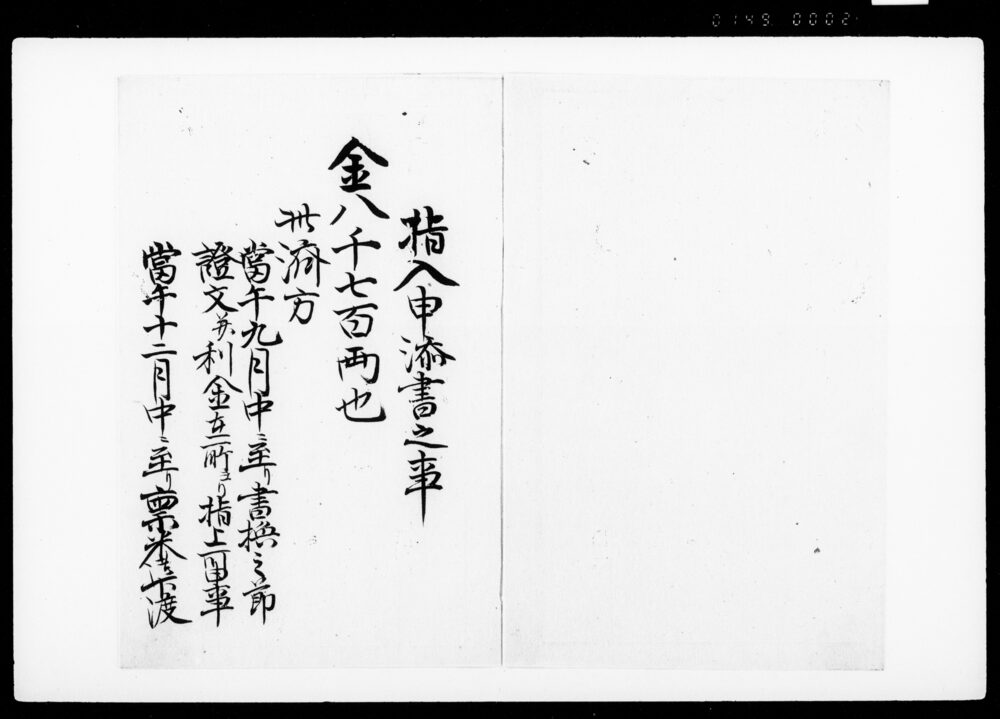 0149 0002
指入申添書之事
金八千七百両也
此済方
當午九月中ニ至り書換之節
證文并利金在町ゟり指上留事
當午十二月中ニ至り御米代渡